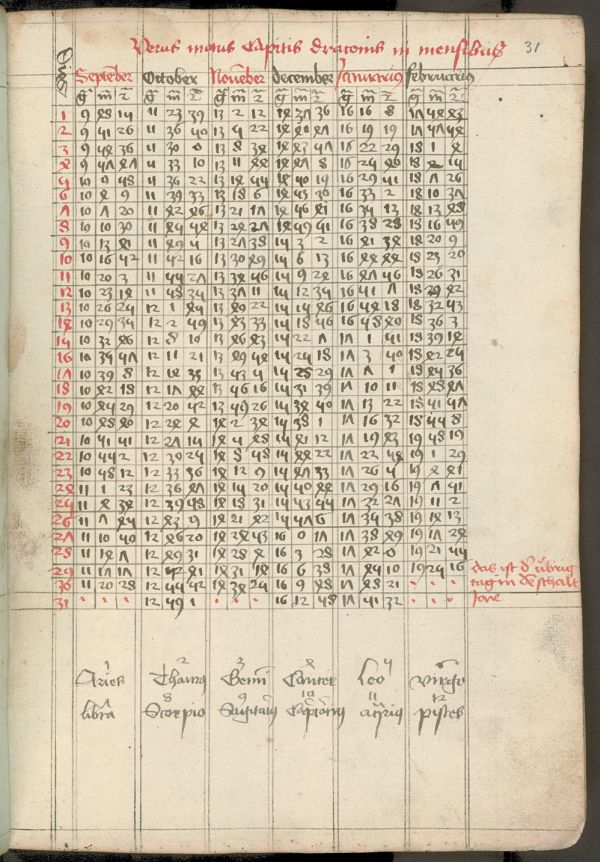 Verus motus Capitis draconis in mensibus 31
Dies September October November december Januarius februarius
g m 2 g m 2 g m 2 g m 2 g m 2 g m 2
1 9 48 15 11 23 39 13 2 12 14 37 36 16 16 8 17 54 43
2 9 51 26 11 36 50 13 5 22 14 40 47 16 19 19 17 57 54
3 9 54 36 11 30 0 13 8 34 14 43 57 16 22 29 18 1 4
4 9 57 47 11 33 10 13 11 44 14 47 8 16 25 40 18 4 15
5 10 0 58 11 36 22 13 14 55 14 50 19 16 29 51 18 7 26
6 10 4 9 11 39 33 13 18 6 14 53 30 16 33 2 18 10 37
7 10 7 20 11 42 46 13 21 17 14 56 41 16 35 13 18 13 48
8 10 10 30 11 45 54 13 24 27 14 59 51 16 38 28 18 16 59
9 10 13 41 11 49 5 13 27 38 15 3 2 16 41 34 18 20 9
10 10 16 52 11 52 16 13 30 49 15 6 13 16 44 44 18 23 20
11 10 20 3 11 55 27 13 34 56 15 9 24 16 47 56 18 26 31
12 10 23 14 11 58 35 13 37 11 15 12 35 16 51 7 18 29 42
13 10 26 25 12 1 45 13 40 22 15 15 46 16 54 18 18 32 53
14 10 29 35 12 2 59 13 43 33 15 18 56 16 58 49 18 36 3
15 10 32 46 12 8 10 13 46 43 15 22 7 17 1 51 18 39 14
16 10 35 57 12 11 21 13 49 54 15 25 18 17 3 50 18 42 25
17 10 39 8 12 14 35 13 53 5 15 28 29 17 7 1 18 45 36
18 10 42 18 12 17 44 13 56 16 15 31 39 17 10 11 18 48 47
19 10 45 29 12 20 52 13 59 26 15 34 50 17 13 22 18 51 57
20 10 48 40 12 24 4 14 2 34 15 38 1 17 16 32 18 55 8
21 10 51 51 12 27 15 14 5 48 15 41 12 17 19 43 19 58 19
22 10 55 2 12 30 25 14 8 58 15 44 22 17 22 54 19 1 29
23 10 58 12 12 33 36 14 12 9 15 47 33 17 26 5 19 4 41
24 11 1 23 12 36 47 14 15 20 15 50 44 17 29 16 19 7 51
25 11 4 34 12 39 58 14 18 31 15 53 55 17 32 27 19 11 2
26 11 7 45 12 43 9 14 21 42 15 57 6 17 35 38 19 14 13
27 11 10 50 12 46 20 14 24 53 16 0 17 17 38 49 19 17 25
28 11 14 7 12 49 31 14 28 4 16 3 28 17 42 0 19 21 55
29 11 17 17 12 52 41 14 31 14 16 6 38 17 45 10 19 25 16 das ist der übrig
30 11 20 28 12 55 52 14 34 25 16 9 48 17 48 21 . . . tag in dem schalt
31 . . . 12 59 1 . . . 16 12 58 17 51 32 Jare
1 2 3 4 5
Aries Thaurus Gemini Cancer Leo virgo
8 9 10 11 12
libra Scorpio Sagitarius Capricornus aquarius pisces